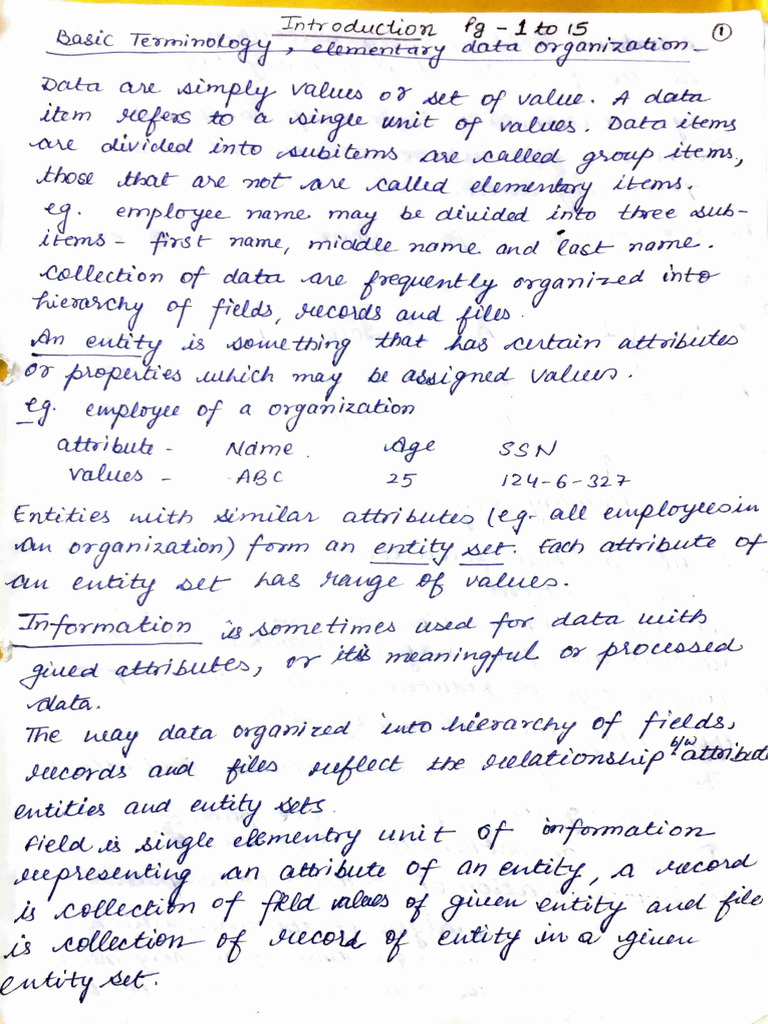 Introduction Pg - 1 to 15 ①
Basic Terminology, elementary data organization -
Data are simply values or set of value. A data
item refers to a single unit of values. Data items
are divided into subitems are called group items,
those that are not are called elementary items.
eg. employee name may be divided into three sub-
items - first name, middle name and last name.
Collection of data are frequently organized into
hierarchy of fields, records and files.
An entity is something that has certain attributes
or properties which may be assigned values.
eg. employee of a organization
attribute - Name Age SSN
values - ABC 25 124-6-327
Entities with similar attributes (eg- all employees in
an organization) form an entity set. Each attribute of
an entity set has range of values.
Information is sometimes used for data with
given attributes, or its meaningful or processed
data.
The way data organized into hierarchy of fields,
records and files reflect the relationship b/w attribute
entities and entity sets.
Field is single elementry unit of information
representing an attribute of an entity, a record
is collection of field values of given entity and file
is collection of record of entity in a given
entity set.